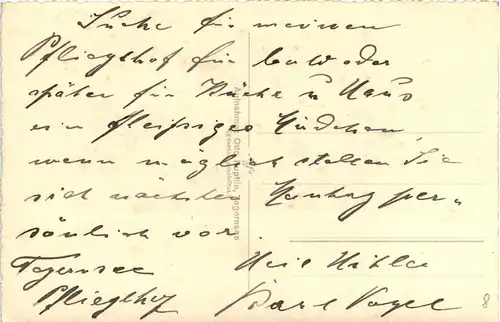 Suche für meinen
Pflieglhof für bald oder
später für Küche u Haus
ein fleißiges Mädchen,
wenn möglich stellen Sie
sich nächsten Montag per-
sönlich vor.
Tegernsee Heil Hitler
Pflieglhof Karl Vogel
Aufnahme: Otto Tegernsee
8